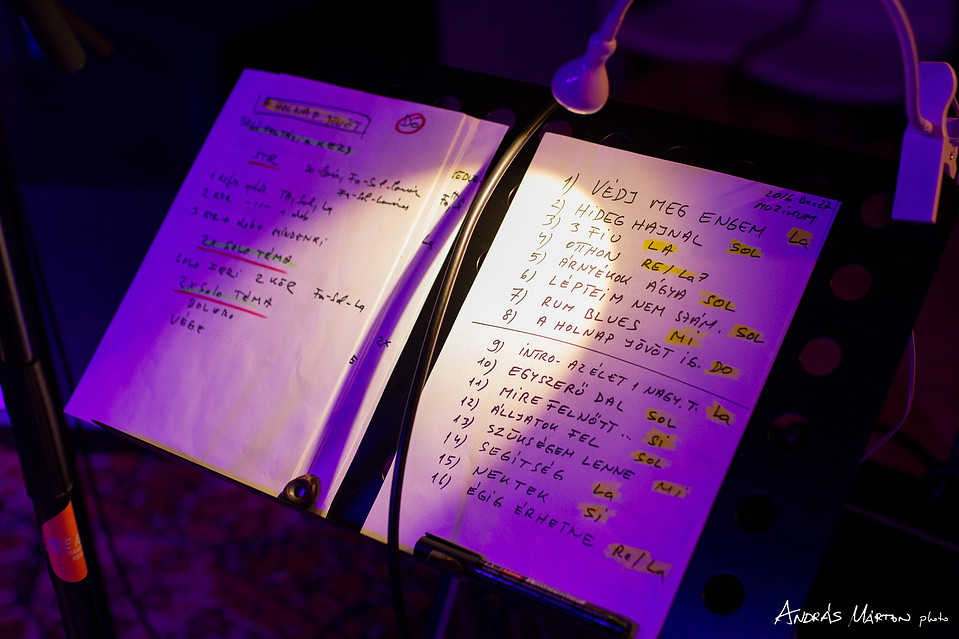 A HOLNAP JÖVŐT
Do
STR
Fa-Sol-Lavin
Fa-Sol-Lavin
MINDENKI
La
2x SOLO TÉMA
SOLO FERI 2 KÖR Fa-Sol-La
2x SOLO TÉMA
VÉGE
2x
2016 Dec 27
MOZIKUM
1) VÉDJ MEG ENGEM La
2) HIDEG HAJNAL SOL
3) 3 FIÚ LA
4) OTTHON RE/La?
5) ÁRNYÉKOK ÁGYA SOL
6) LÉPTEIM NEM SZÁM. SOL
7) RUM BLUES Mi
8) A HOLNAP JÖVŐT IG. DO
9) INTRO-AZ ÉLET 1 NAGY.T. La
10) EGYSZERŰ DAL SOL
11) MIRE FELNŐTT... Si
12) ÁLLJATOK FEL SOL
13) SZÜKSÉGEM LENNE Mi
14) SEGÍTSÉG La
15) NEKTEK Si
16) ÉGIG ÉRHETNE Re/La
ANDRÁS MÁRTON photo